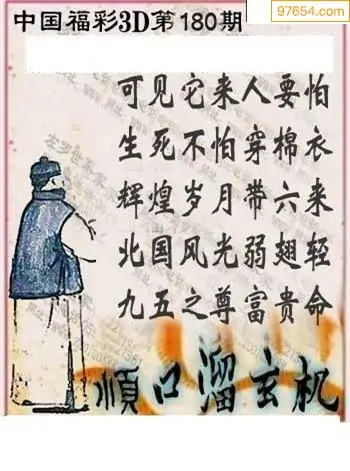 97654.com
中国福彩3D第180期
可见它来人要怕
生死不怕穿棉衣
辉煌岁月带六来
北国风光弱翅轻
九五之尊富贵命
順口溜玄机